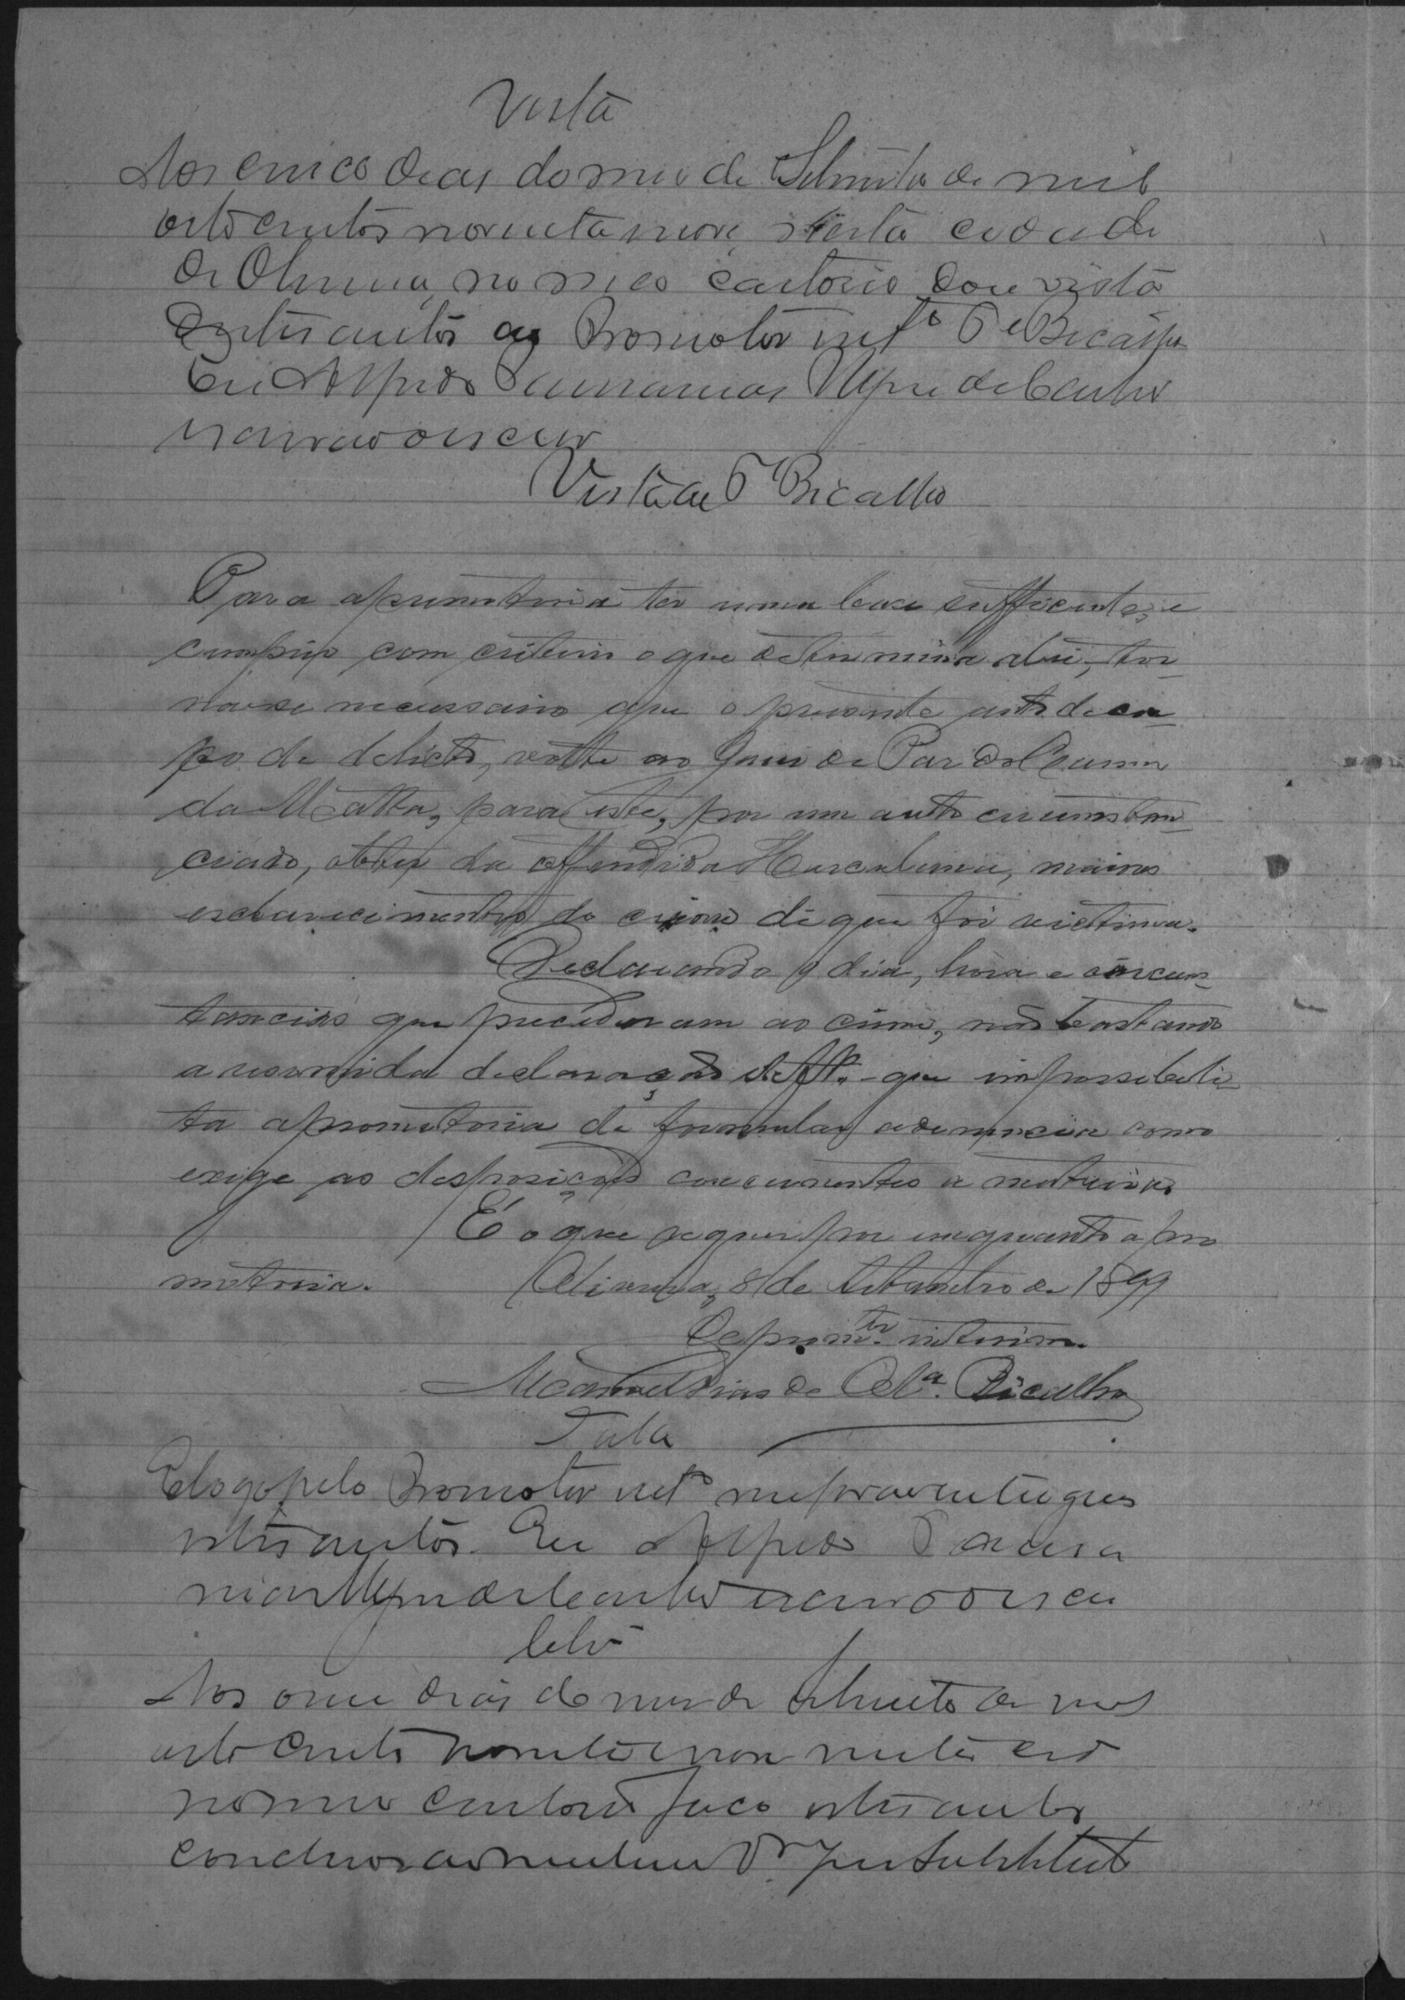 Vista
Aos cinco dias do mez de Setembro de mil
oito centos noventa nove, nesta cidade
de Oliveira, no meo cartorio dou vista
destes autos ao Promotor intº Cel Bicalho
Eu Alfredo Paranaios de Castro
escrivão o escrevi
Vista ao Cel Bicalho
Para a promotoria ter uma base sufficiente, e
cumprir com criterio o que determina a lei, tor-
na-se necessario que o presente auto de cor
po de delicto, volte ao Juiz de Paz do Carmo
da Matta, para este, por um auto circumstan-
ciado, obter da offendida Hercalina, maiores
esclarecimentos do crime de que foi victima.
Declarando o dia, hora e circuns-
tancias que precederam ao crime, não bastando
a resumida declaração de fl. - que impossibili-
ta a promotoria de formular a denuncia como
exige as desposições concernentes a materia.
É o que requer por emquanto a pro
motoria. Oliveira, 8 de Setembro de 1899
O promtor interino.
Manoel Dias de Olª. Bicalho
Data
E logo pelo Promotor intº me foram entregues
estes autos. Eu Alfredo Parana
de Castro escrivão o escrevi
Cls
Aos onze dias do mez de Setembro de mil
oito centos noventa e nove nesta cid
no meo cartorio faço estes autos
conclusos ao meritissimo Dr. Juiz Substituto